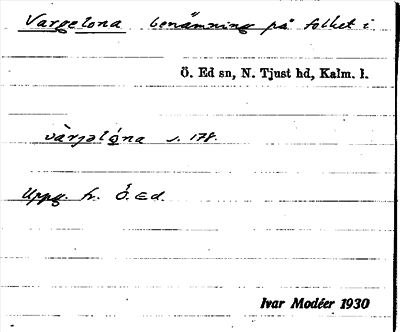 Vargelona benämning på folket i
Ö. Ed sn, N. Tjust hd, Kalm. l.
vàrjəlóna s. 178.
Uppg. fr. Ö. Ed.
Ivar Modéer 1930